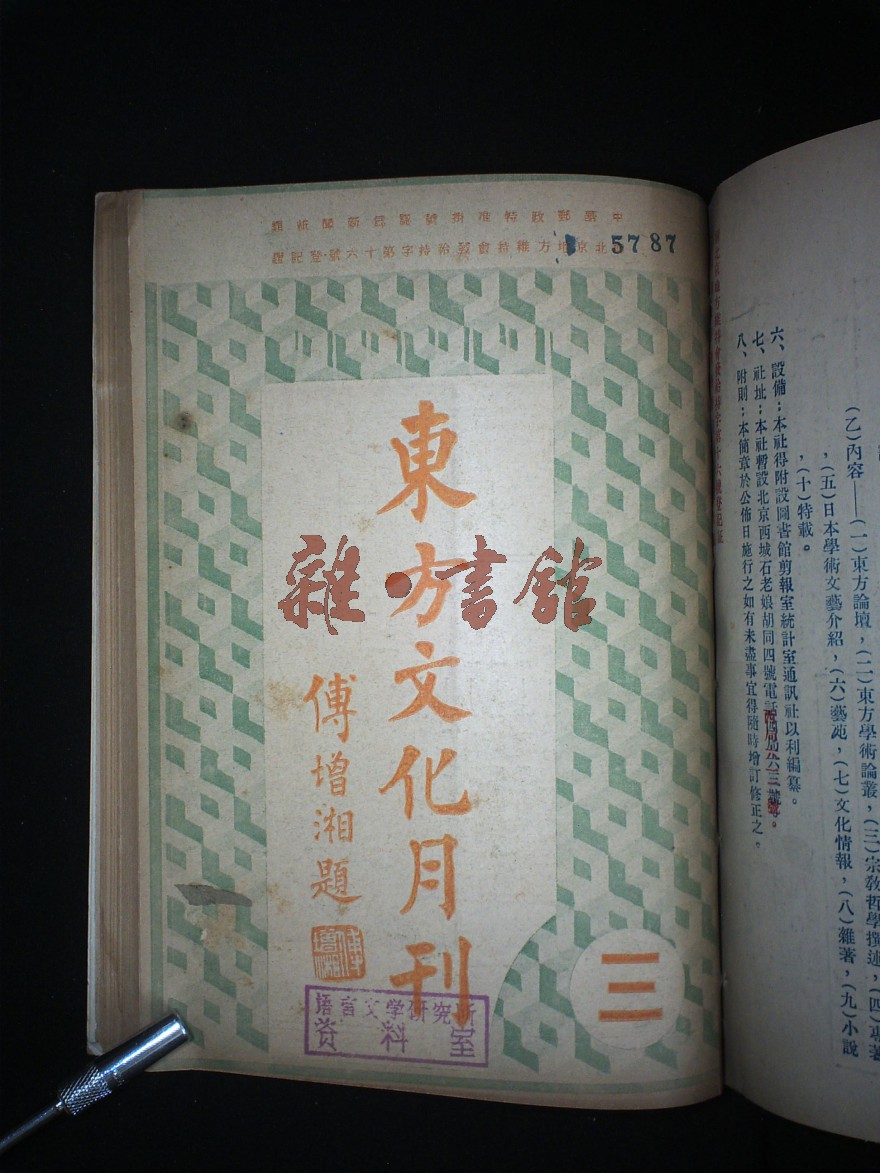 中華郵政特准掛號認為新聞紙類
北京地方維持會發給特字第十六號登記證
5787
東方文化月刊
傅增湘題
雜·書館
三
语言文学研究所
资料室
(乙)內容——(一)東方論壇,(二)東方學術論叢,(三)宗教哲學撰述,(四)專著
,(五)日本學術文藝介紹,(六)藝苑,(七)文化情報,(八)雜著,(九)小說
,(十)特載。
六、設備:本社得附設圖書館剪報室統計室通訊社以利編纂。
七、社址:本社暫設北京西城石老娘胡同四號電話
八、附則:本簡章於公佈日施行之如有未盡事宜得隨時增訂修正之。